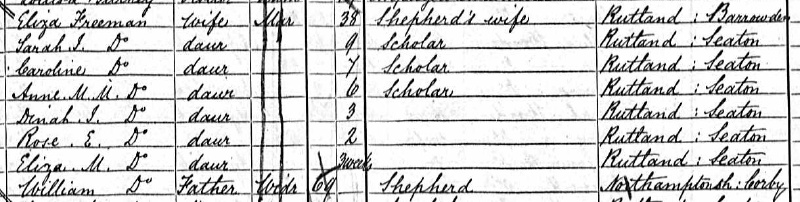 Eliza Freeman Wife Mar 38 Shepherd's wife Rutland : Barrowden
Sarah J. Do daur 9 Scholar Rutland : Seaton
Caroline Do daur 7 Scholar Rutland : Seaton
Anne M. M. Do daur 6 Scholar Rutland : Seaton
Dinah J. Do daur 3 Rutland : Seaton
Rose E. Do daur 2 Rutland : Seaton
Eliza M. Do daur 3 weeks Rutland : Seaton
William Do Father Widr 69 Shepherd Northamptonsh : Corby